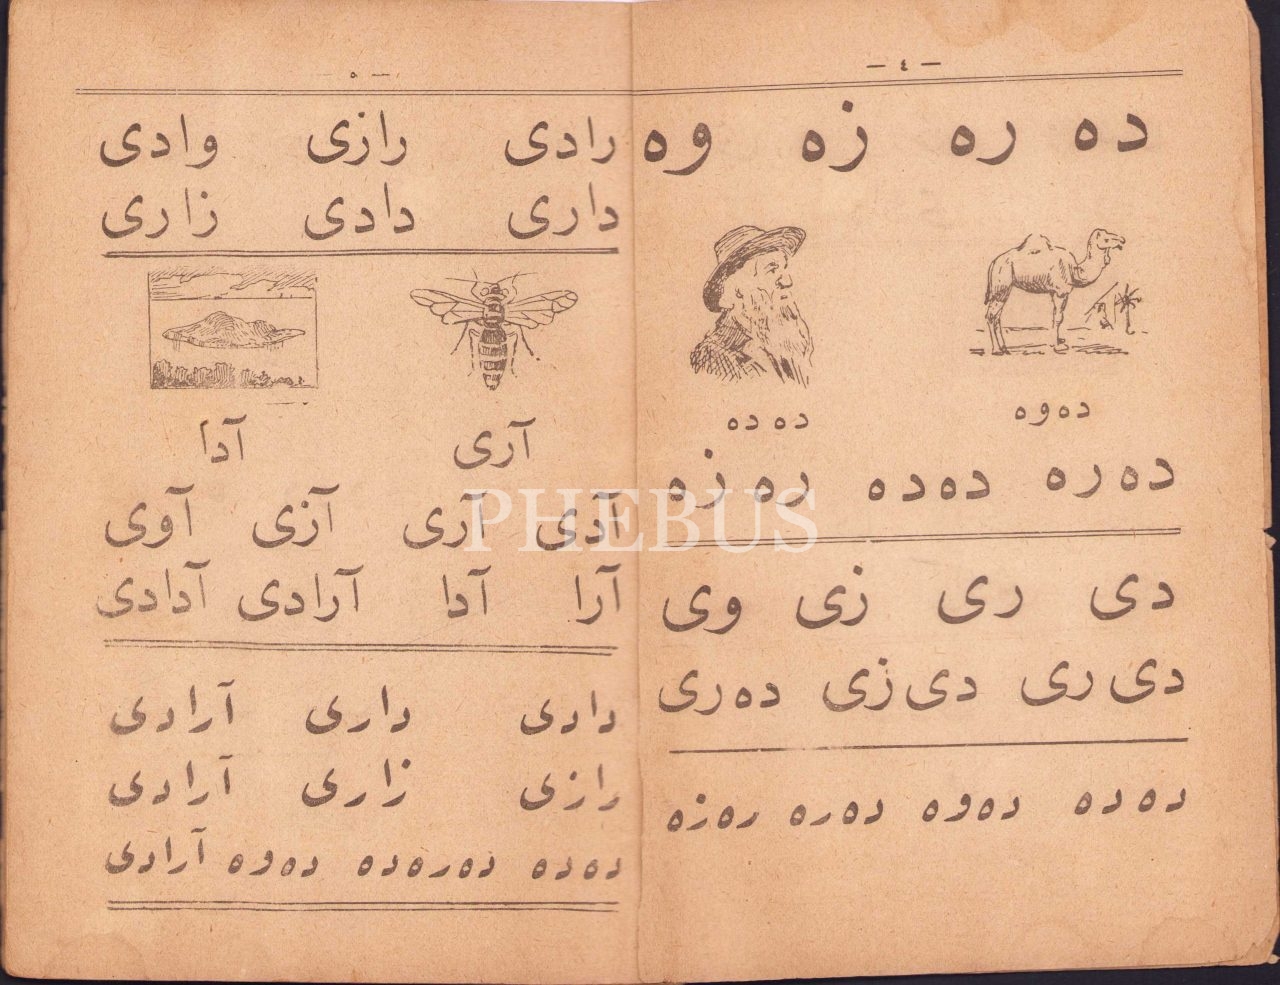 — ٤ —
ده ره زه وه
ده‌وه ده‌ده
ده‌ره ده‌ده ره‌زه
دی ری زی وی
دی‌ری دی‌زی ده‌ری
ده‌ده ده‌وه ده‌ره ره‌زه
— ٥ —
رادی رازی وادی
داری دادی زاری
آری آدا
آدی آری آزی آوی
آرا آدا آرادی آدادی
دادی داری آرادی
رازی زاری آرادی
ده‌ده ده‌ره‌ده ده‌وه آرادی
PHEBUS